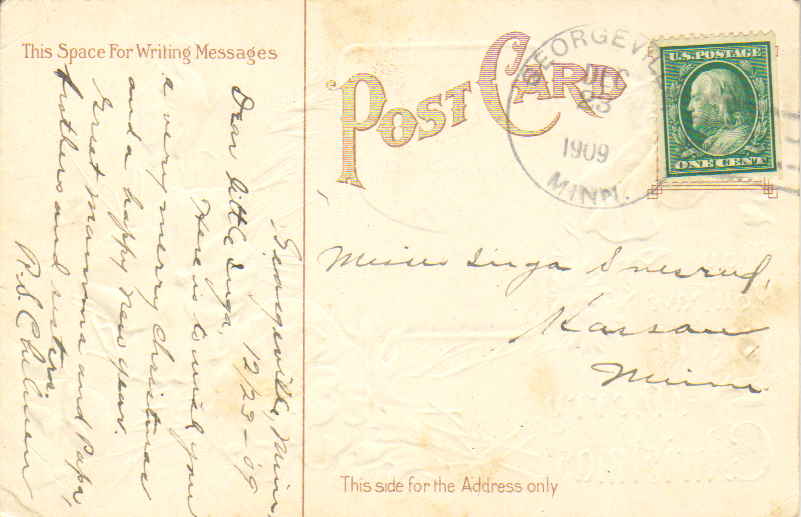 This Space For Writing Messages
POST CARD
GEORGEVILLE
DEC
23
1909
MINN.
U.S. POSTAGE
ONE CENT
Georgeville, Minn,
12/23-09
Dear little Inga,
Here is to wish you
a very merry Christmas
and a happy New year.
Greet mamma and Papa,
brothers and sisters.
Inga
Kasson
Minn.
This side for the Address only